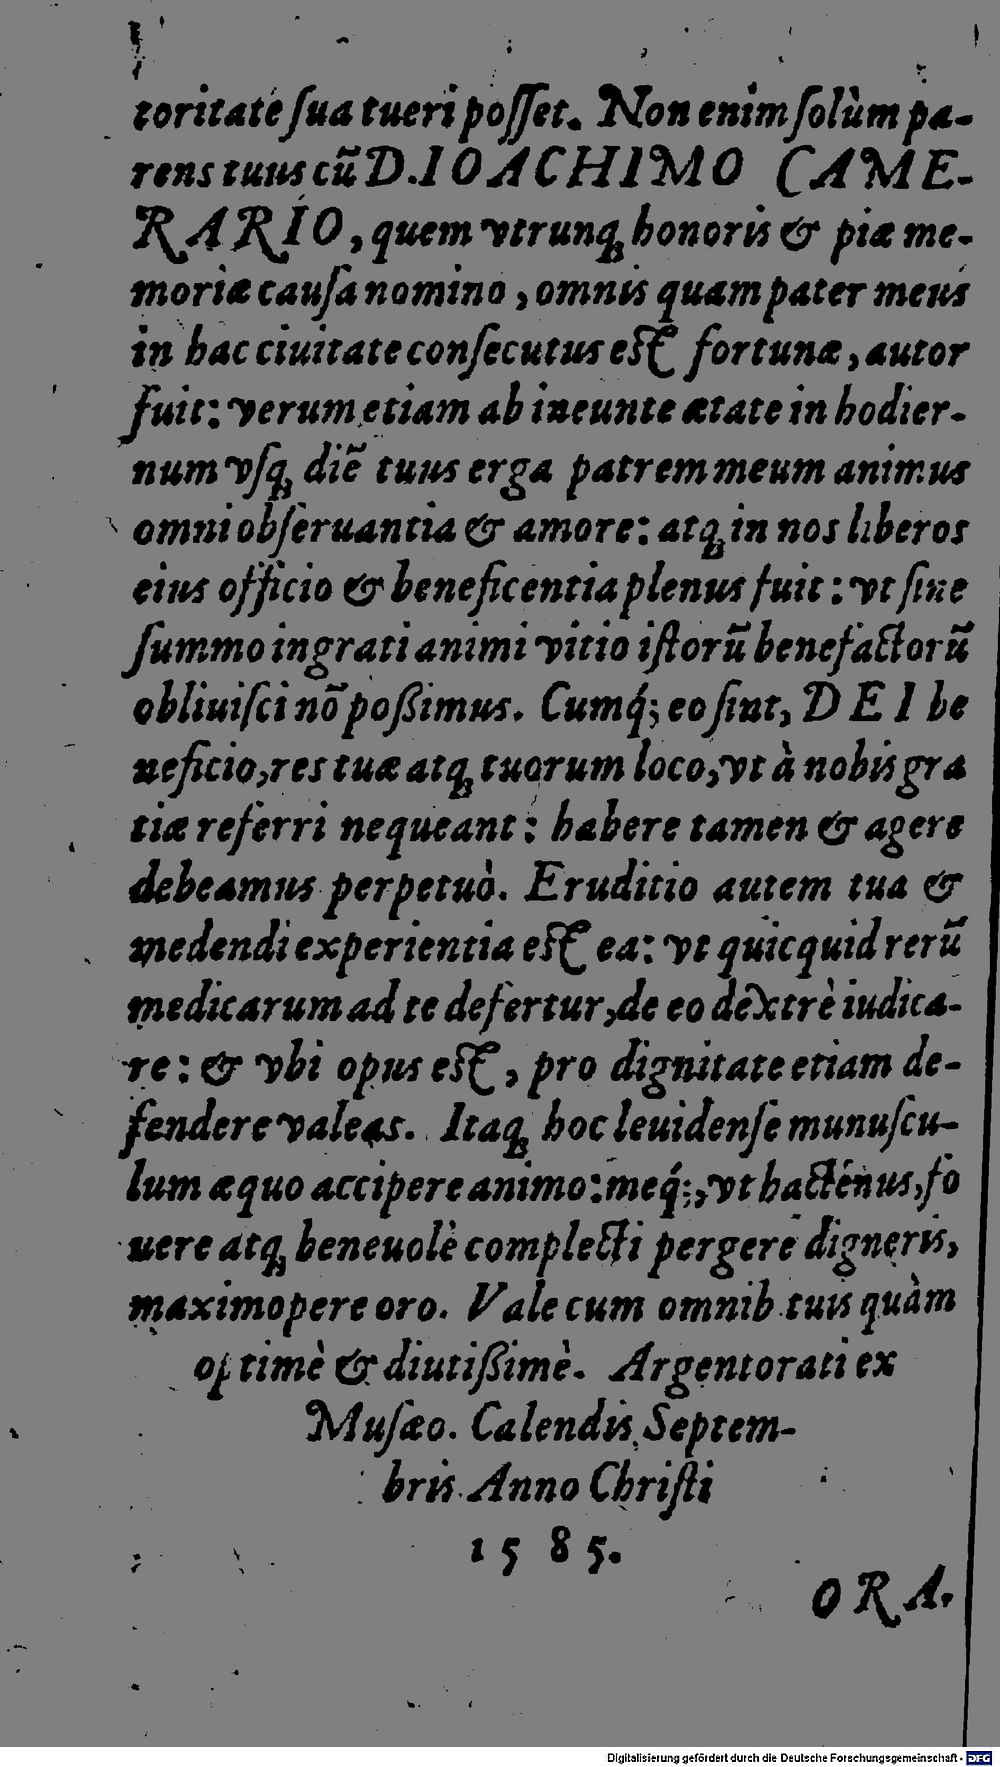 toritate ſua tueri poſſet. Non enim ſolùm pa-
rens tuus cū D. IOACHIMO CAME-
RARIO, quem vtrunq; honoris & piæ me-
moriæ cauſa nomino, omnis quam pater meus
in hac ciuitate conſecutus eſt fortunæ, autor
fuit: verum etiam ab ineunte ætate in hodier-
num vſq; diē tuus erga patrem meum animus
omni obſeruantia & amore: atq; in nos liberos
eius officio & beneficentia plenus fuit: vt ſine
ſummo ingrati animi vitio iſtorū benefactorū
obliuiſci nō poßimus. Cumq́; eo ſint, DEI be
neficio, res tuæ atq; tuorum loco, vt à nobis gra
tiæ referri nequeant: habere tamen & agere
debeamus perpetuò. Eruditio autem tua &
medendi experientia eſt ea: vt quicquid rerū
medicarum ad te defertur, de eo dextrè iudica-
re: & vbi opus eſt, pro dignitate etiam de-
fendere valeas. Itaq; hoc leuidenſe munuſcu-
lum æquo accipere animo: meq́;, vt hactenus, fo
uere atq; beneuolè complecti pergere digneris,
maximopere oro. Vale cum omnib. tuis quàm
optimè & diutißimè. Argentorati ex
Muſæo. Calendis Septem-
bris Anno Chriſti
1585.
ORA.
Digitalisierung gefördert durch die Deutsche Forschungsgemeinschaft - DFG